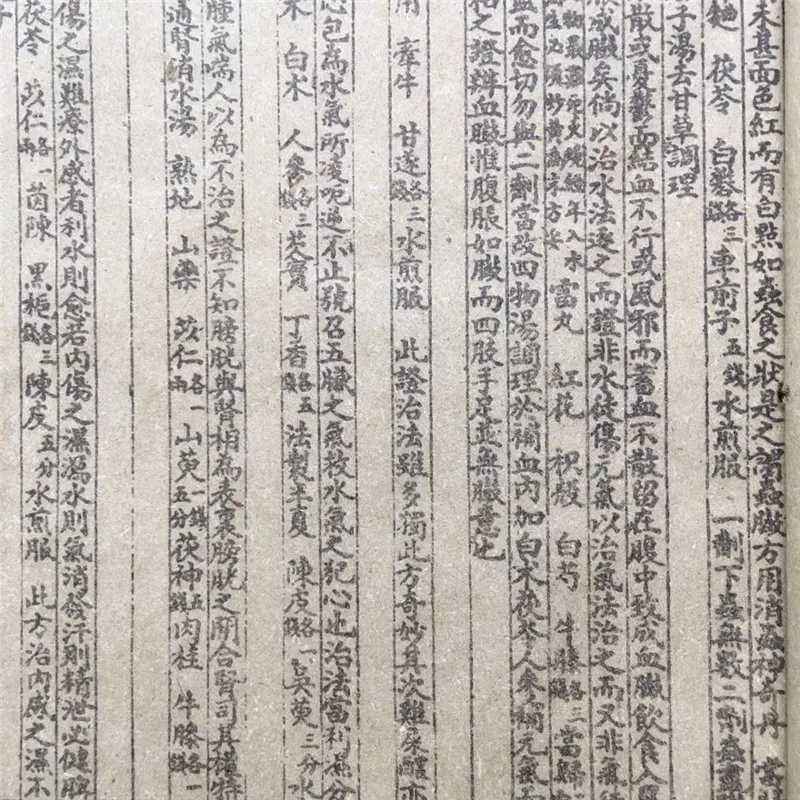 未真面色紅而有白點如蟲食之狀是之謂蟲臌方用消蟲神奇丹 當
茯苓 白礬各三錢 車前子五錢 水煎服 一劑下蟲無數二劑蟲盡
子湯去甘草調理
散或憂鬱而結血不行或風邪而蓄血不散留在腹中致成血臌飲食入
成臌矣倘以治水法逐之而證非水徒傷元氣以治氣法治之而又非氣
年入水 炒黃為末方妥 雷丸 紅花 枳殼 白芍 牛膝各三錢 當歸
血而愈切勿與二劑當改四物湯調理於補血內加白朮茯苓人參補元氣而
和之證辨血臌惟腹脹如臌而四肢手足並無臌意也
用 牽牛 甘遂各三錢 水煎服 此證治法雖多獨此方奇妙其次雞屎醴亦
心包為水氣所凌呃逆不止號召五臟之氣救水氣之犯心也治法當利濕分
木 白朮 人參各三錢 芡實 丁香各五錢 法製半夏 陳皮各一錢 吳萸三分 水
腫氣喘人以為不治之證不知膀胱與腎相為表裏膀胱之開合腎司其權特
通腎消水湯 熟地 山藥 苡仁各一兩 山萸一錢五分 茯神五錢 肉桂 牛膝各一錢
傷之濕難療外感者利水則愈若內傷之濕瀉水則氣消發汗則精泄必健脾
茯苓 苡仁各一兩 茵陳 黑梔各三錢 陳皮五分 水煎服 此方治內感之濕不